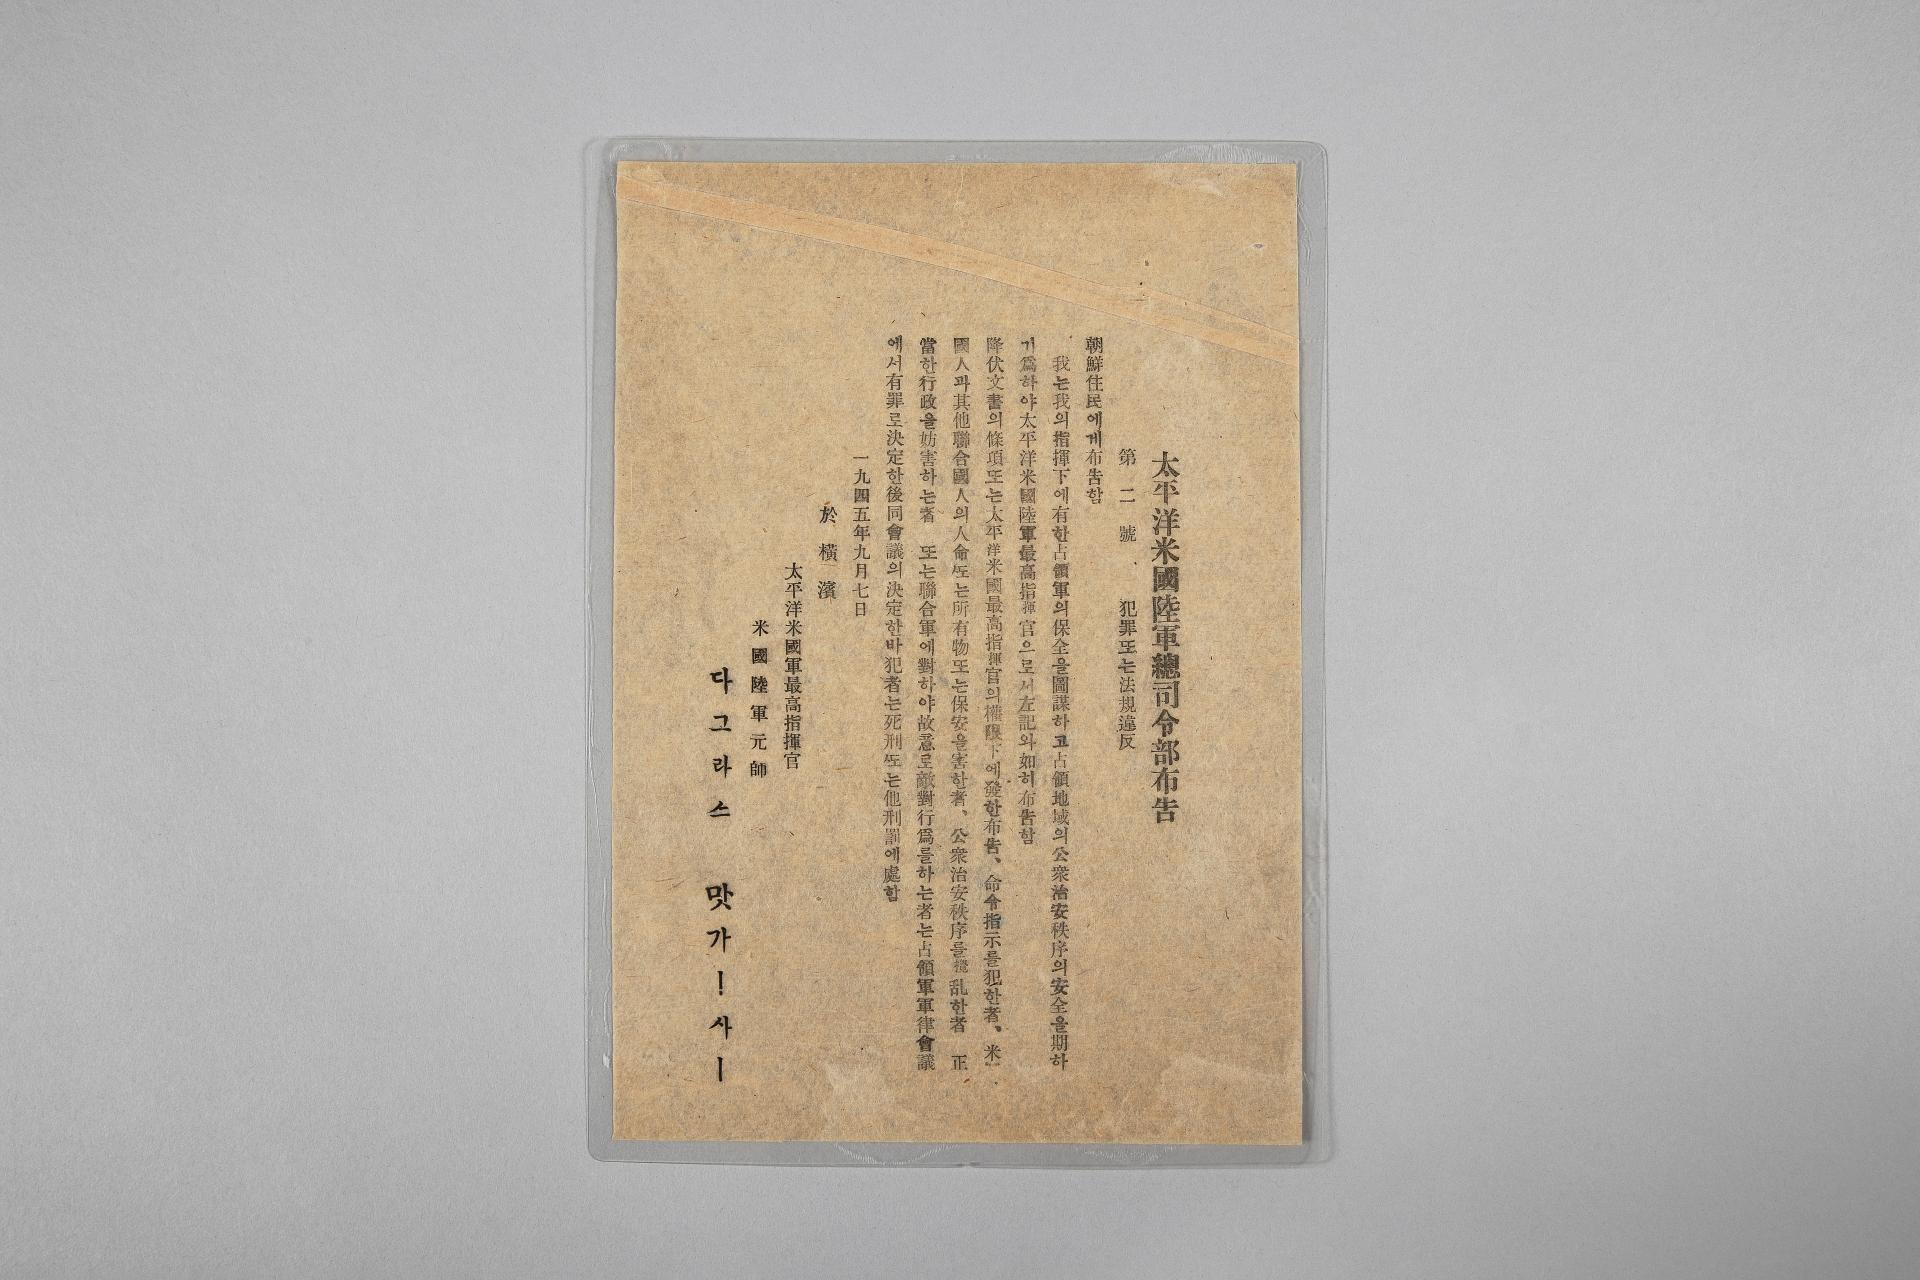 太平洋米國陸軍總司令部布告
第二號、犯罪또는法規違反
朝鮮住民에게布告함
我는我의指揮下에有한占領軍의保全을圖謀하고占領地域의公衆治安秩序의安全을期하
기爲하야太平洋米國陸軍最高指揮官으로서左記와如히布告함
降伏文書의條項또는太平洋米國最高指揮官의權限下에發한布告、命令指示를犯한者、米
國人과其他聯合國人의人命또는所有物또는保安을害한者、公衆治安秩序를攪乱한者 正
當한行政을妨害하는者 또는聯合軍에對하야故意로敵對行爲를하는者는占領軍軍律會議
에서有罪로決定한後同會議의決定한바犯者는死刑또는他刑罰에處함
一九四五年九月七日
於橫濱
太平洋米國軍最高指揮官
米國陸軍元師
다그라스 맛가ー사ー